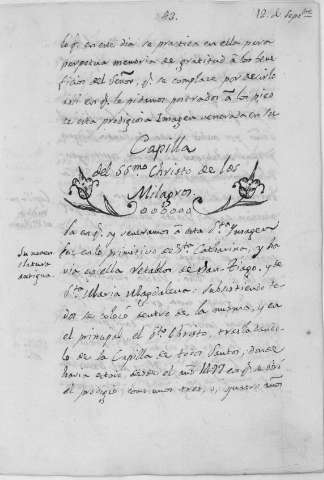 43.
12. d Sepre
lo q. en este dia se practica en ella para
perpetua memoria de gratitud a los bene
ficios del Señor, q. se complace por decirlo
assi en q. le pidamos postrados a los pies
de esta prodigiosa Imagen venerada en su
Capilla
del SSmo Christo de los
Milagros.
la en q. oy veneramos a esta Sta Ymagen
fue en lo primitivo de Sta Catharina, y ha
via en ella retablos de San Tiago, y de
Sta Maria Magdalena. Subsistiendo to
dos se colocó dentro de la misma, y en
el principal, el Sto Christo, trasladando
lo de la Capilla de todos Santos, donde
havia estado desde el año 1477 en q. se obró
el prodigio, como unos tres, o, quatro años
Su nomen
clatura
antigua.